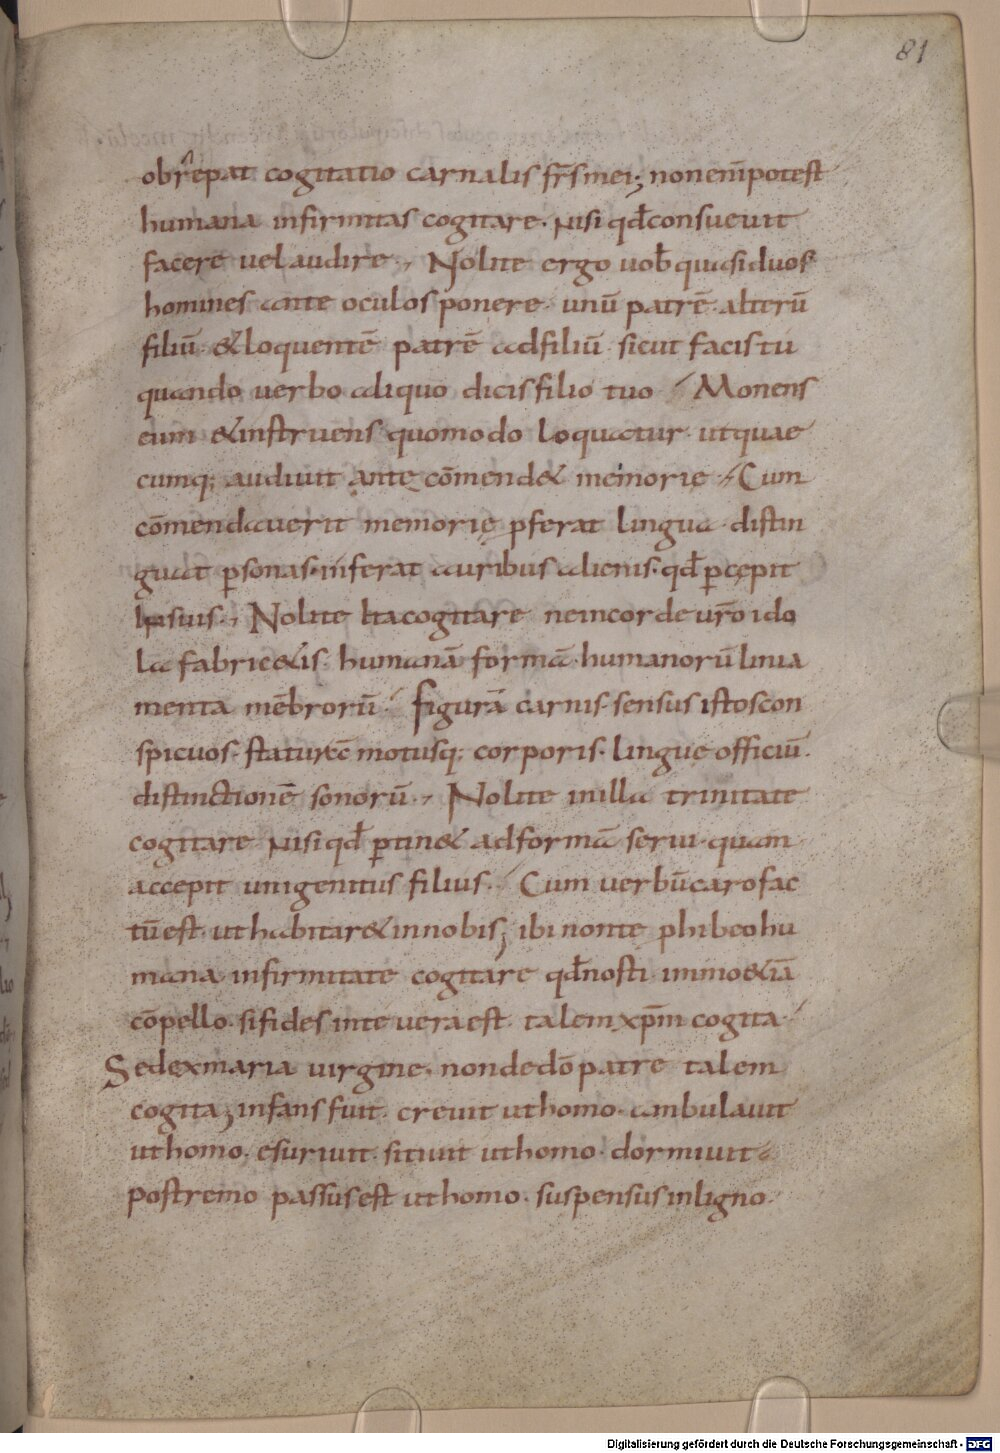 81
obrepat cogitatio carnalis fr̄s mei; non enī potest
humana infirmitas cogitare. nisi qđ consueuit
facere uel audire., Nolite ergo uob̄ quasi duos
homines ante oculos ponere. unū patrē. alterū
filiū. & loquentē patrē ad filiū. sicut facis tu
quando uerbo aliquo dicis filio tuo. Monens
eum & instruens quomodo loquatur. ut quae
cumq; audiuit ante cōmend& memorie. Cum
cōmendauerit memorię pferat lingua. distin
guat psonas. inferat auribus alienis. qđ pcepit
ipsius., Nolite ita cogitare ne in corde ur̄o ido
la fabric&is. humanā formā. humanorū linia
menta mēbrorū. figurā carnis. sensus istos con
spicuos. staturā & motusq; corporis. lingue officiū.
distinctionē sonorū., Nolite in illa trinitate
cogitare nisi qđ ptin& ad formā serui. quam
accepit unigenitus filius. Cum uerbū caro fac
tū est. ut habitar& in nobis; ibi non te phibeo hu
mana infirmitate cogitare qđ nosti. immo & iā
cōpello. si fides in te uera est. talem xp̄m cogita.
Sed ex maria uirgine. non de dō patre talem
cogita; infans fuit. creuit ut homo. ambulauit
ut homo. esuriuit. sitiuit ut homo. dormiuit.
postremo passus est ut homo. suspensus in ligno.
Digitalisierung gefördert durch die Deutsche Forschungsgemeinschaft - DFG